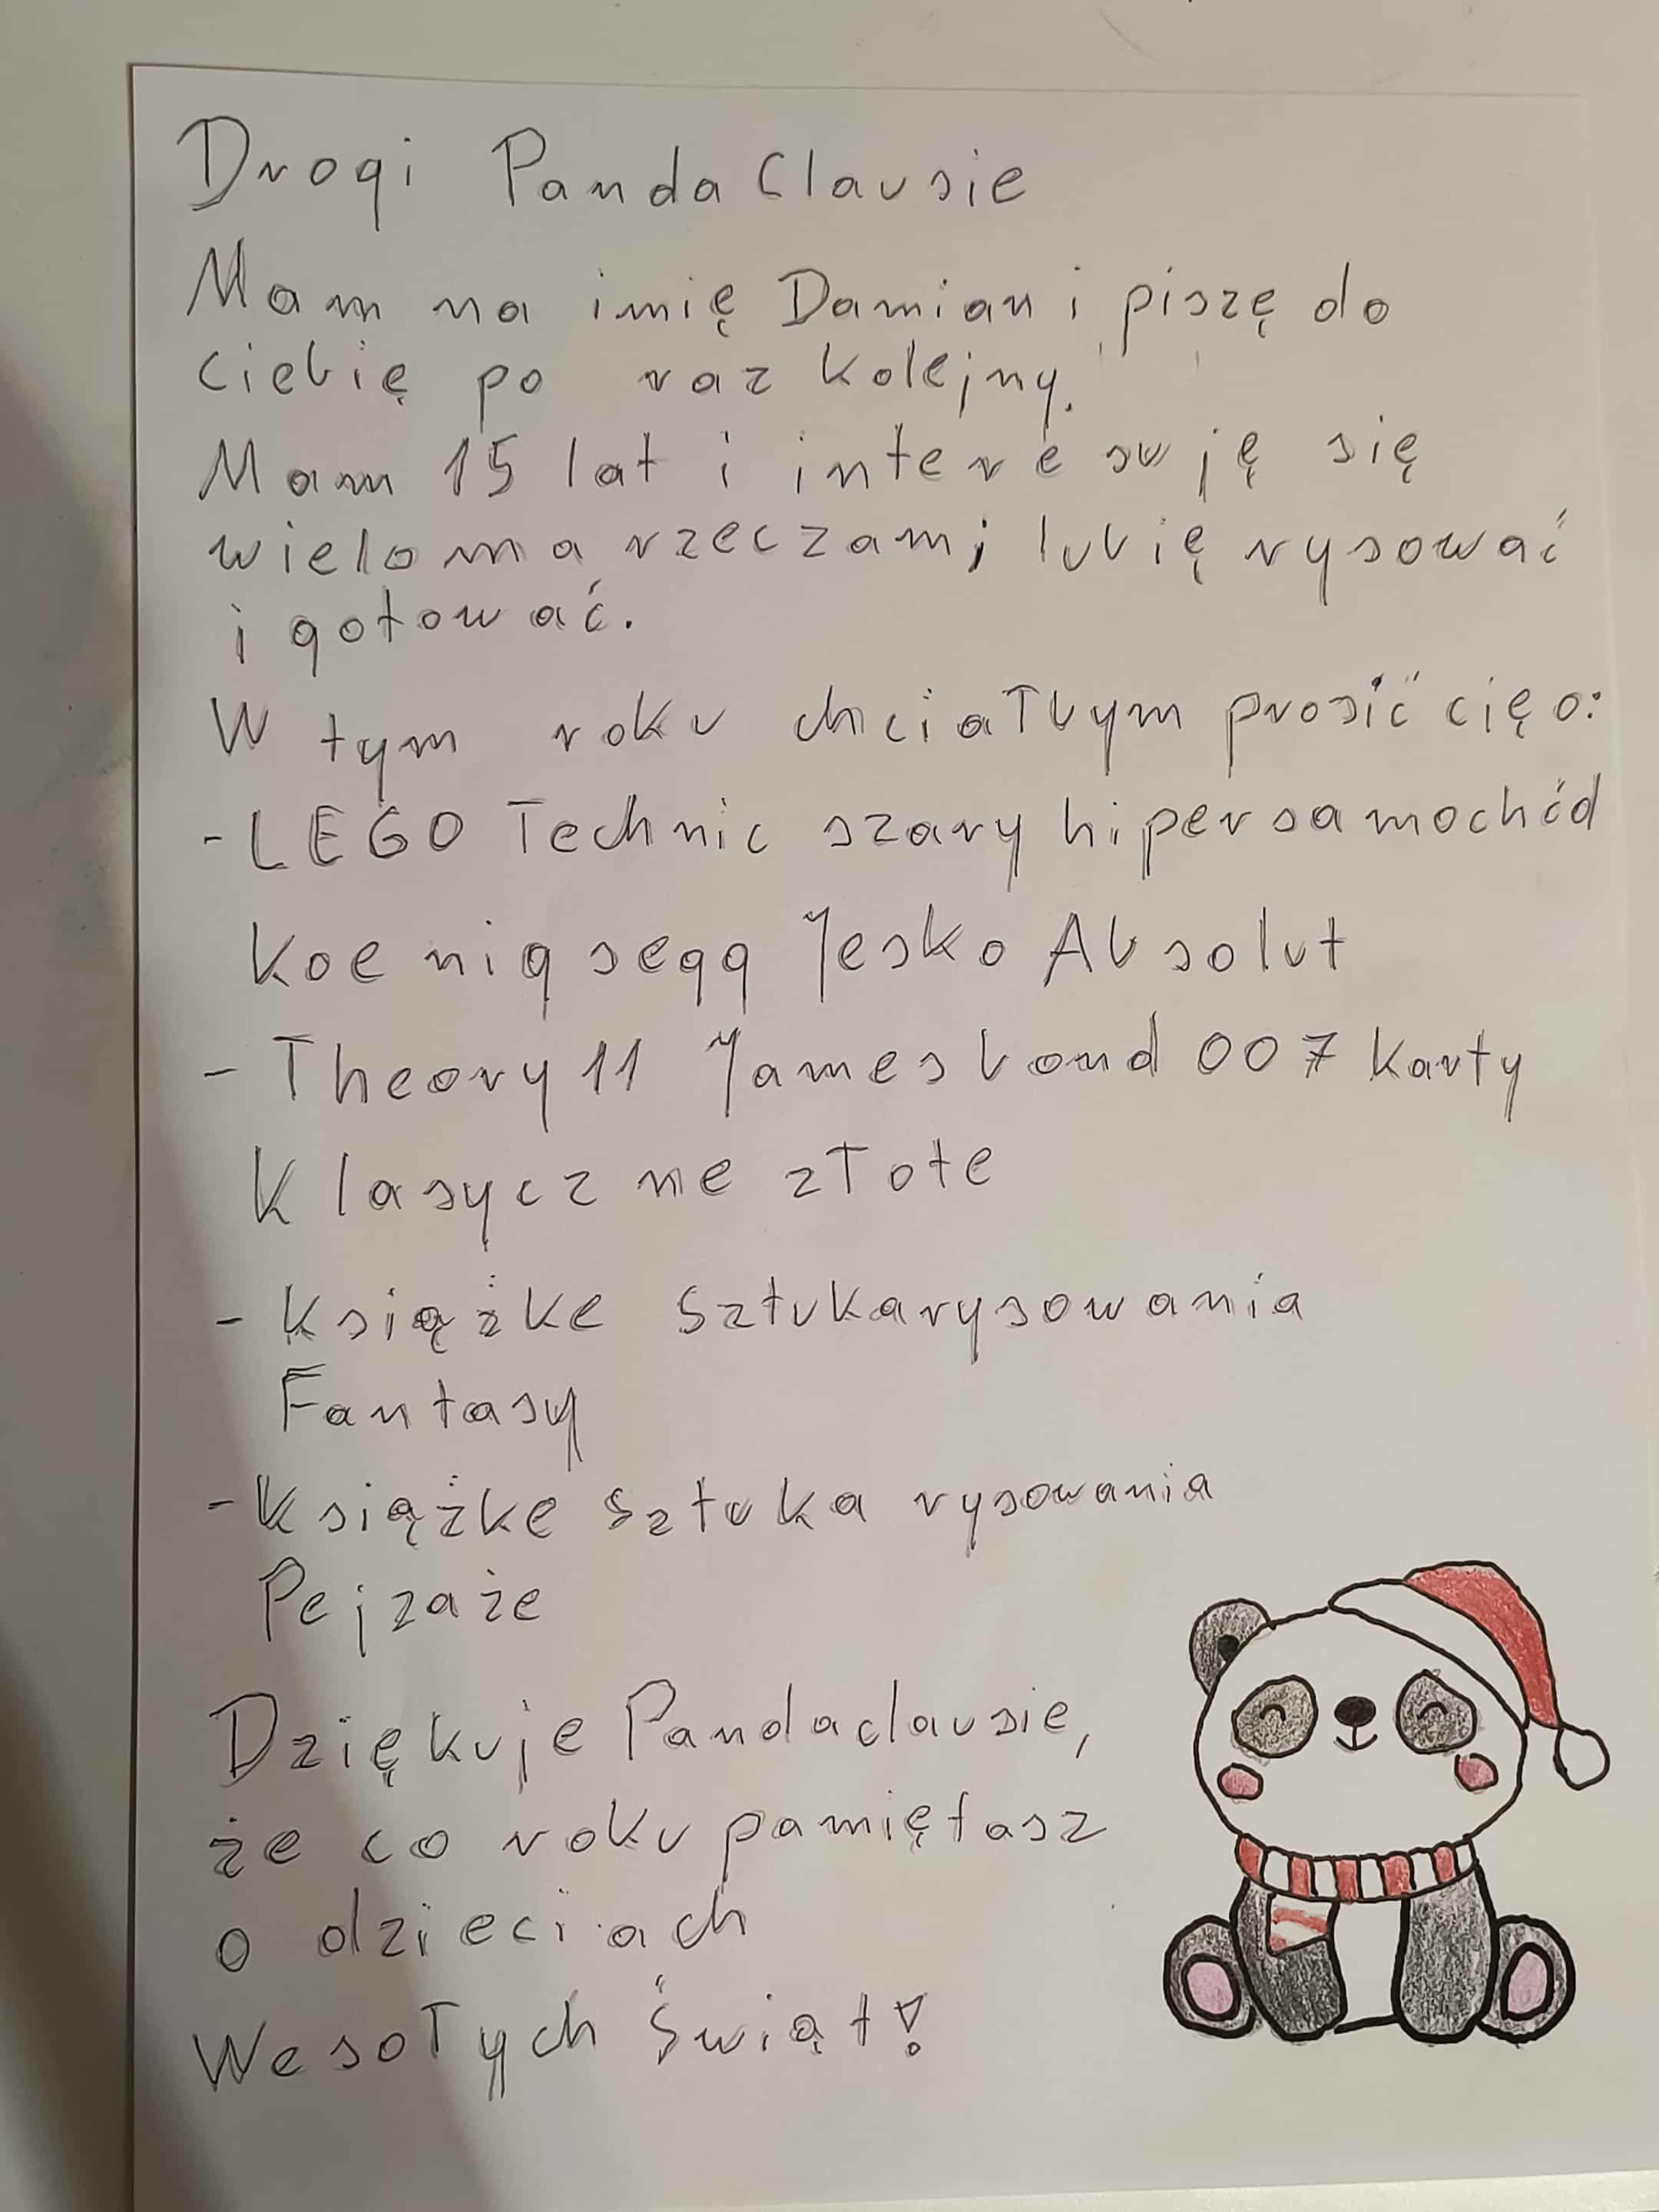 Drogi Panda Clausie
Mam na imię Damian i piszę do
ciebię po raz kolejny.
Mam 15 lat i interesuję się
wieloma rzeczami lubię rysować
i gotować.
W tym roku chciałbym prosić cię o:
- LEGO Technic szary hipersamochód
Koenigsegg Jesko Absolut
- Theory 11 James bond 007 karty
Klasyczne złote
- Książke Sztuka rysowania
Fantasy
- Książke Sztuka rysowania
Pejzaże
Dziękuje Pandaclausie,
że co roku pamiętasz
o dzieciach
Wesołych Świąt!